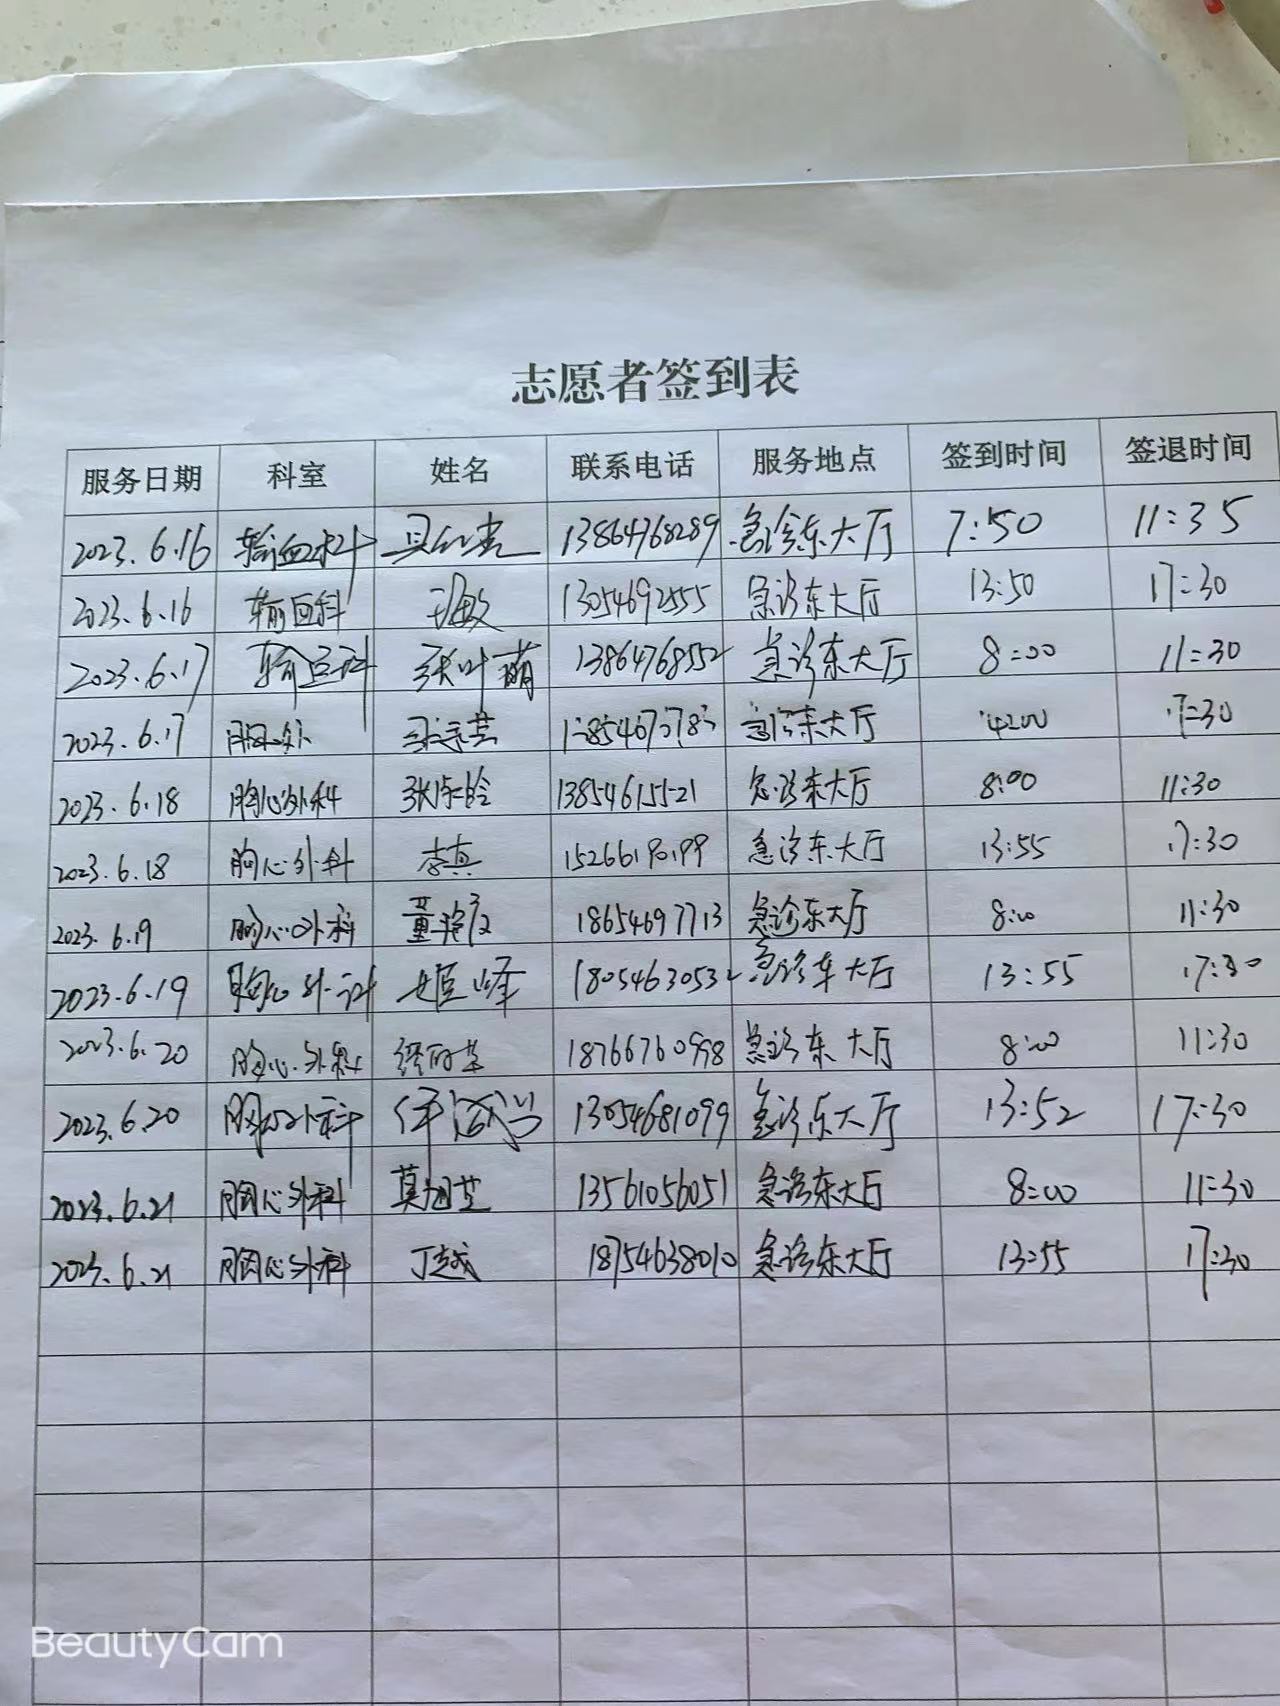 志愿者签到表
服务日期 科室 姓名 联系电话 服务地点 签到时间 签退时间
2023.6.16 输血科 13864768289 急诊东大厅 7:50 11:35
2023.6.16 输血科 13054692555 急诊东大厅 13:50 17:30
2023.6.17 输血科 张叶萌 13864768552 急诊东大厅 8:00 11:30
2023.6.17 胸心外 急诊东大厅 17:30
2023.6.18 胸心外科 13854615521 急诊东大厅 8:00 11:30
2023.6.18 胸心外科 李真 15266190199 急诊东大厅 13:55 17:30
2023.6.19 胸心外科 18654697713 急诊东大厅 8:00 11:30
2023.6.19 胸心外科 姬峰 18054630532 急诊东大厅 13:55 17:30
2023.6.20 胸心外科 18766760998 急诊东大厅 8:00 11:30
2023.6.20 胸心外科 13054681099 急诊东大厅 13:52 17:30
2023.6.21 胸心外科 13561056051 急诊东大厅 8:00 11:30
2023.6.21 胸心外科 丁越 18754638010 急诊东大厅 13:55 17:30
BeautyCam